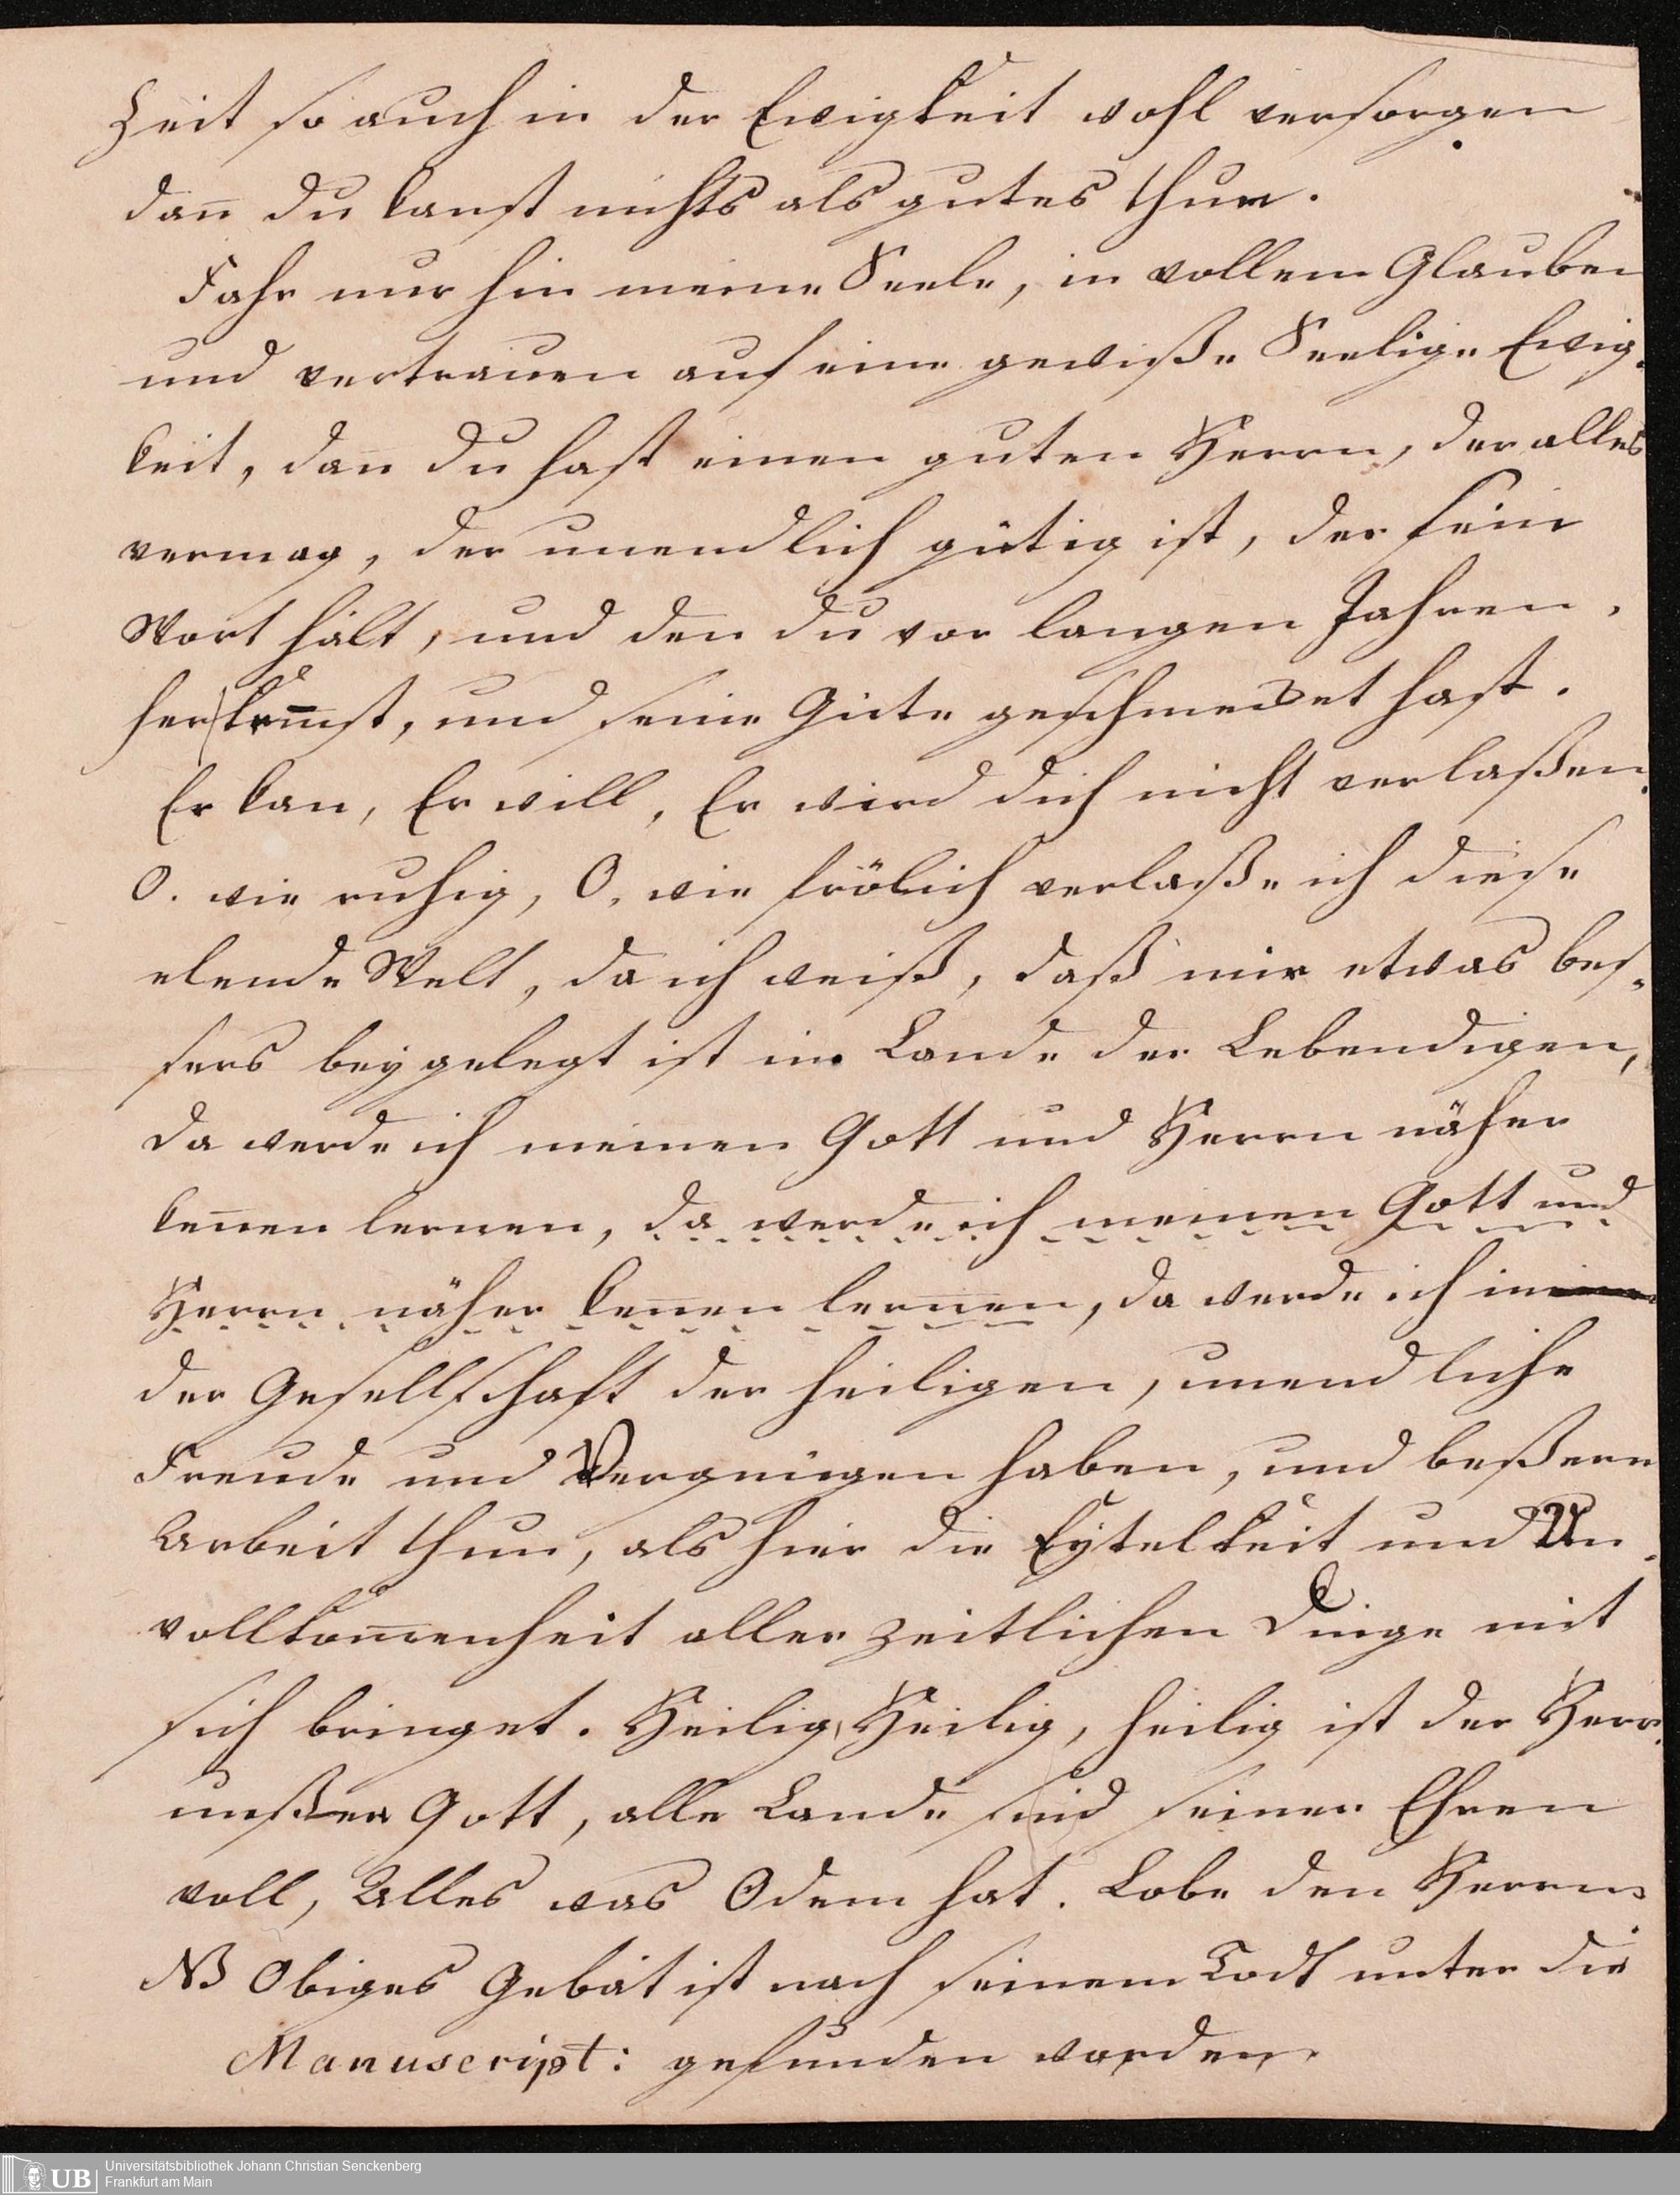 Zeit so auch in der Ewigkeit wohl versorgen
dan̄ du kanst nichts als gutes thun.
Fahr nur hin meine Seele, in vollem Glauben
und vertrauen auf eine gewiße Seelige Ewig-
keit, dan̄ du hast einen guten Herrn, der alles
vermag, der unendlich gütig ist, der sein
Wort hält, und den du vor langen Jahren
her ken̄st, und seine Güte geschmecket hast.
Er kan, Er will, Er wird dich nicht verlaßen.
O. wie ruhig, O, wie frölich verlaße ich diese
elende Welt, da ich weiß, daß mir etwas bes-
sers beygelegt ist im Lande der Lebendigen,
da werde ich meinen Gott und Herrn näher
ken̄en lernen, da werde ich meinen Gott und
Herrn näher ken̄en lernen, da werde ich in
der Gesellschaft der heiligen, unendliche
Freude und Vergnügen haben, und beßere
Arbeit thun, als hier die Eytelkeit und Un-
vollkom̄enheit aller zeitlichen Dinge mit
sich bringet. Heilig, Heilig, heilig ist der Herr
unßer Gott, alle Lande sind seiner Ehren
voll, Alles was Odem hat. Lobe den Herrn
NB Obiges Gebät ist nach seinem Todt unter die
Manuscript: gefunden worden.
UB Universitätsbibliothek Johann Christian Senckenberg
Frankfurt am Main